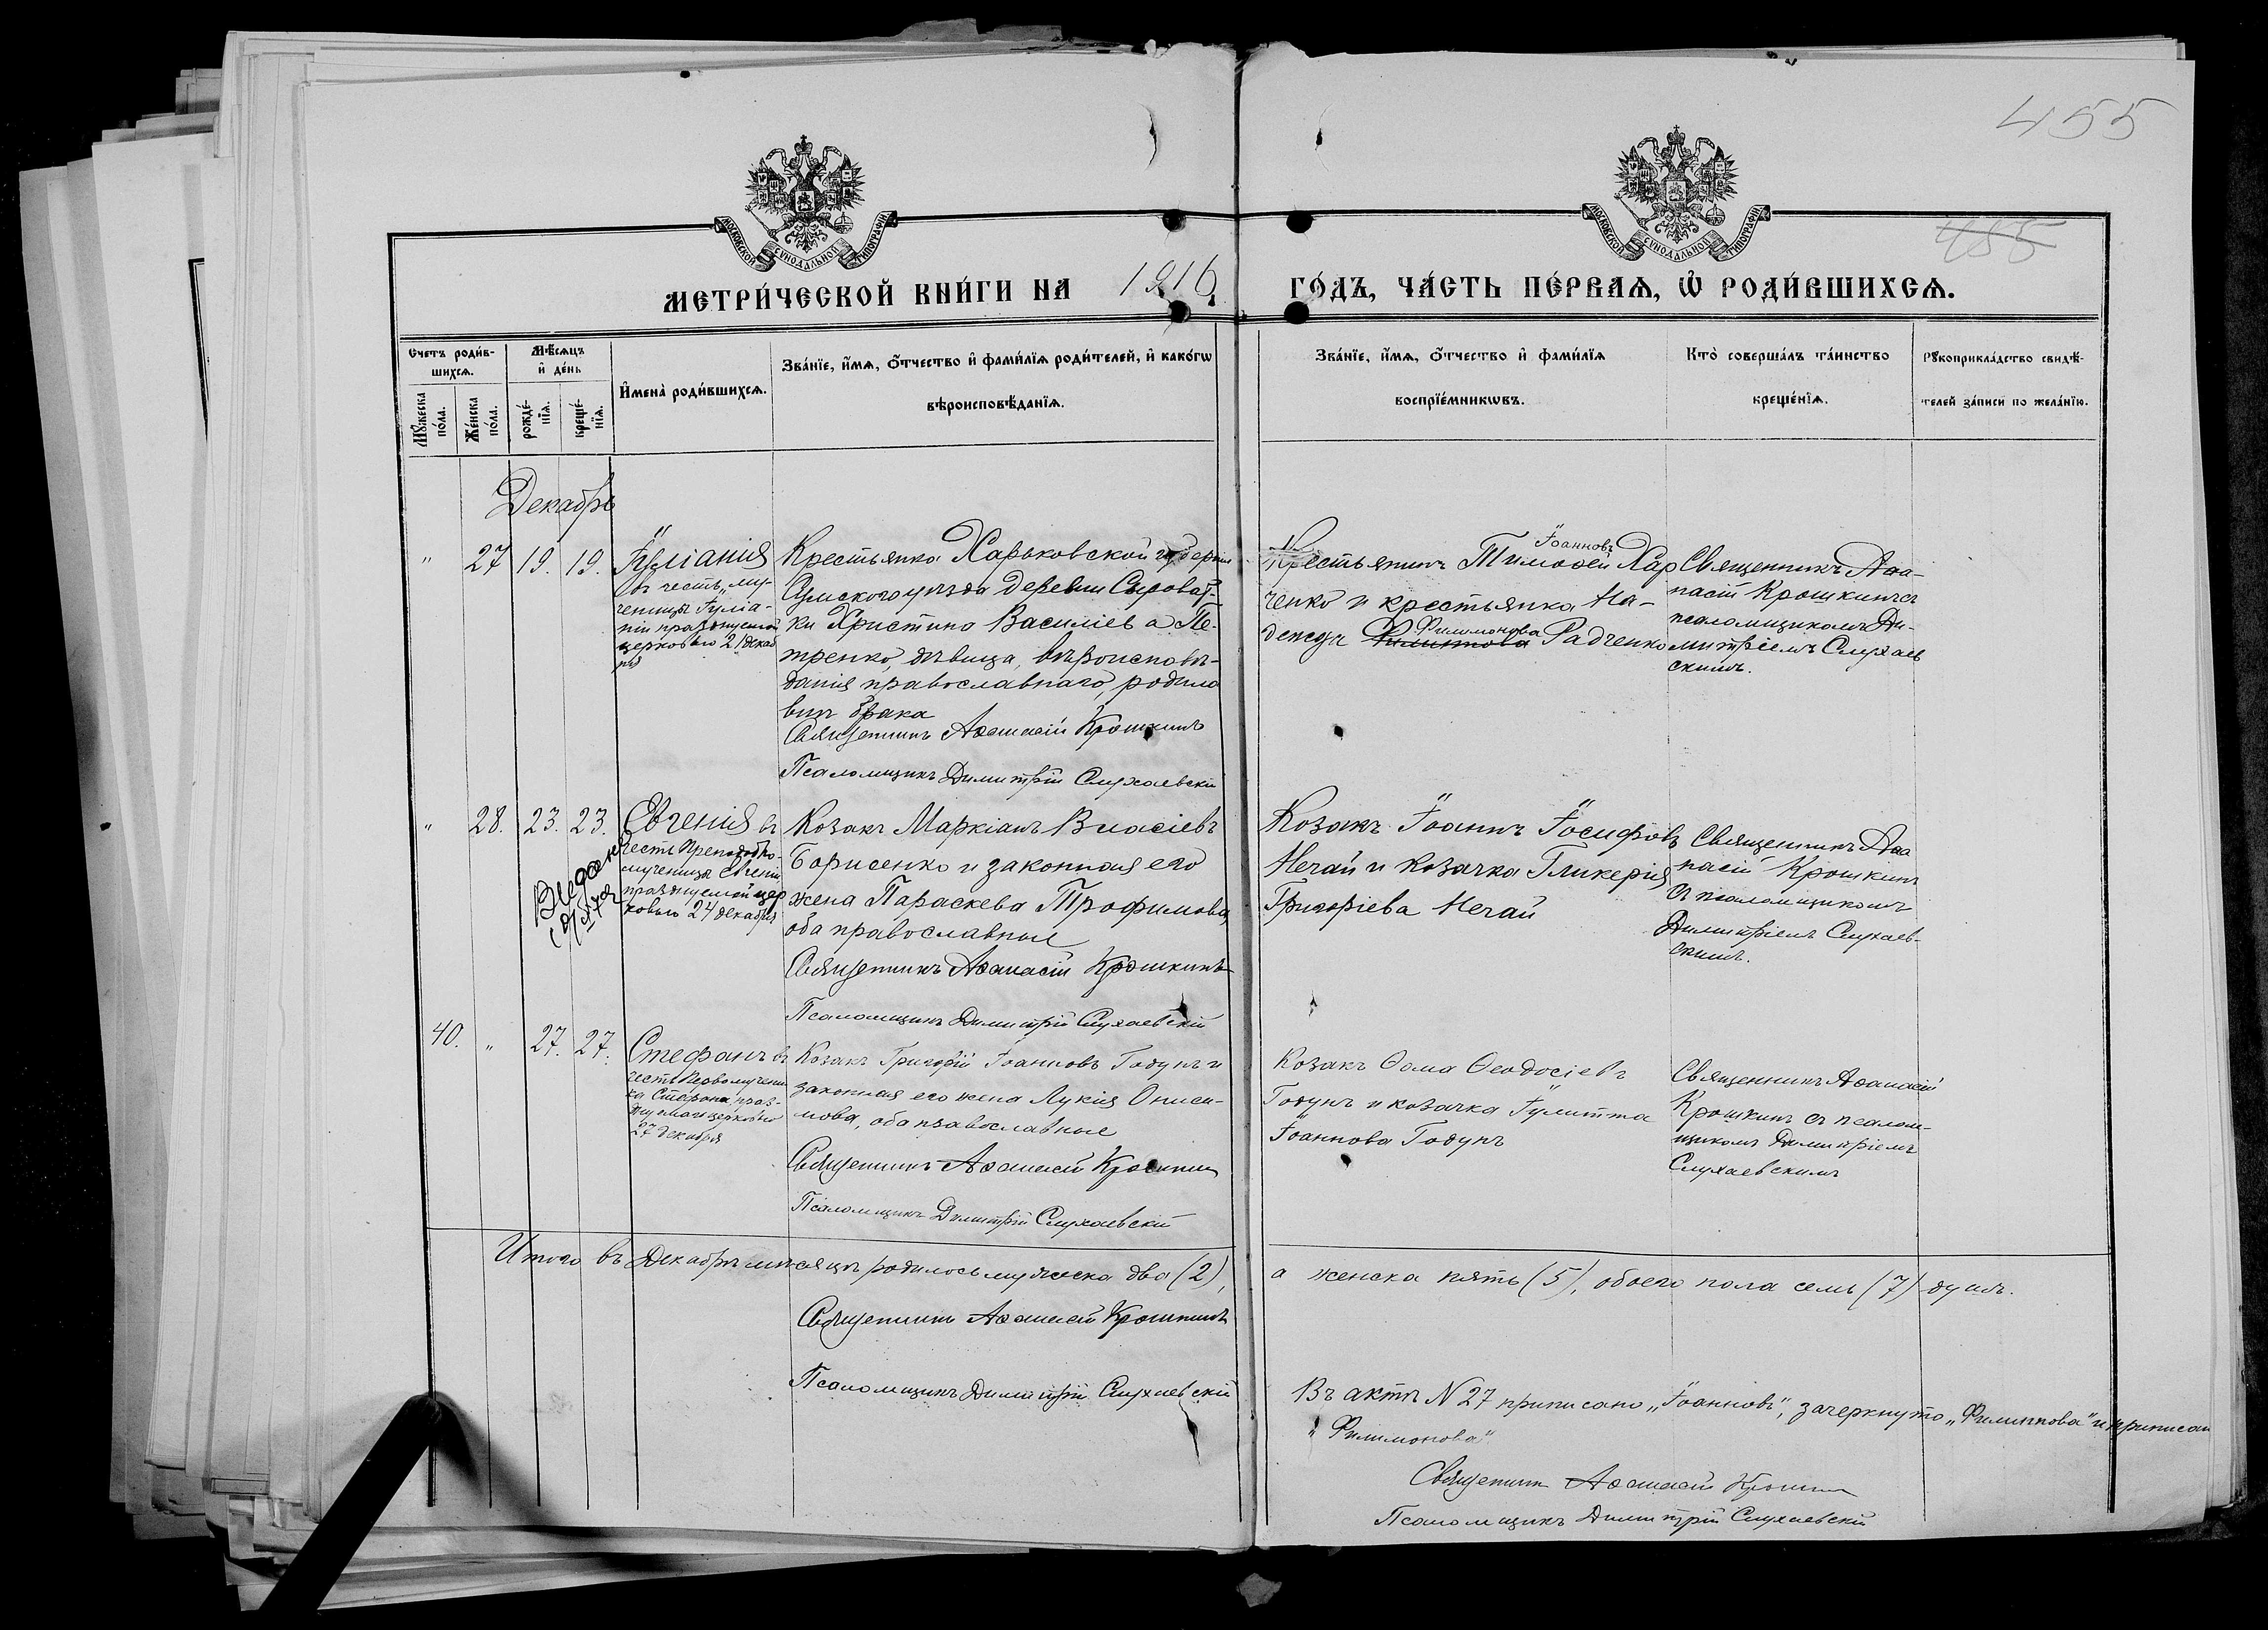 455
455
МОСКОВСКОЙ СѴНОДАЛЬНОЙ ТИПОГРАФІИ
МОСКОВСКОЙ СѴНОДАЛЬНОЙ ТИПОГРАФІИ
МЕТРИ́ЧЕСКОЙ КНИ́ГИ НА 1916 ГО́ДЪ, ЧА́СТЬ ПЕ́РВАѦ, Ѡ҆ РОДИ́ВШИХСѦ.
Счетъ роди́в-
шихсѧ.
Мꙋ́жеска по́ла.
Же́нска по́ла.
Мѣ́сѧцъ
и҆ де́нь
рожде́-
нїѧ.
креще́-
нїѧ.
И҆мена̀ роди́вшихсѧ.
Зва́нїе, и҆́мѧ, ѻ҆́тчество и҆ фами́лїѧ роди́телей, и҆ како́гѡ
вѣроисповѣ́данїѧ.
Зва́нїе, и҆́мѧ, ѻ҆́тчество и҆ фами́лїѧ
воспрїе́мникѡвъ.
Кто̀ соверша́лъ та́инство
креще́нїѧ.
Рꙋкоприкла́дство свидѣ́-
телей за́писи по жела́нїю.
Декабрь
" 27 19. 19.
Іуліанія
въ честь му-
ченицы Іуліа-
ніи празднуемой
церковью 21 декаб
ря
Крестьянка Харьковской губерніи
Сумского уѣзда деревни Сыроват-
ки Христина Василіева Пе-
тренко, дѣвица, вѣроисповѣ-
данія православнаго, родила
внѣ брака
Священникъ Аѳанасій Крошкинъ
Псаломщикъ Димитрій Слухаевскій
Іоанновъ
Крестьянинъ Тимоѳей Хар
ченко и крестьянка На-
дежда Филиппова Филимонова Радченко
Священникъ Аѳа-
насій Крошкинъ съ
псаломщикомъ Ди-
митріемъ Слухаев
скимъ.
" 28. 23. 23.
Евгенія въ
честь Преподобно-
мученицы Евгеніи
празднуемой цер
ковью 24 декабря
Козакъ Маркіанъ Власіевъ
Борисенко и законная его
жена Параскева Трофимова,
оба православные
Священникъ Аѳанасій Крошкинъ
Псаломщикъ Димитрій Слухаевскій
Козакъ Іоаннъ Іосифовъ
Нечай и козачка Гликерія
Григоріева Нечай
Священникъ Аѳа
насій Крошкинъ
съ псаломщикомъ
Димитріемъ Слухаев-
скимъ.
40. " 27. 27.
Стефанъ въ
честь Первомучени
ка Стефана, праз-
днуемаго церковью
27 декабря
Козакъ Григорій Іоанновъ Годунъ и
законная его жена ЛукіяОниси-
мова, оба православные
Священникъ Аѳанасій Крошкинъ
Псаломщикъ Димитрій Слухаевскій
Козакъ Ѳома Ѳеодосіевъ
Годунъ и козачка Іулитта
Іоаннова Годунъ
Священникъ Аѳанасій
Крошкинъ съ псалом-
щикомъ Димитріемъ
Слухаевскимъ
Итого въ Декабрѣ мѣсяцѣ родилось мужеска два (2), а женска пять (5), обоего пола семь (7) душъ.
Священникъ Аѳанасій Крошкинъ
Псаломщикъ Димитрій Слухаевскій
Въ актѣ № 27 приписано „Іоанновъ", зачеркнуто „Филиппова" и приписан
„Филимонова"
Священникъ Аѳанасій Крошкинъ
Псаломщикъ Димитрій Слухаевскій